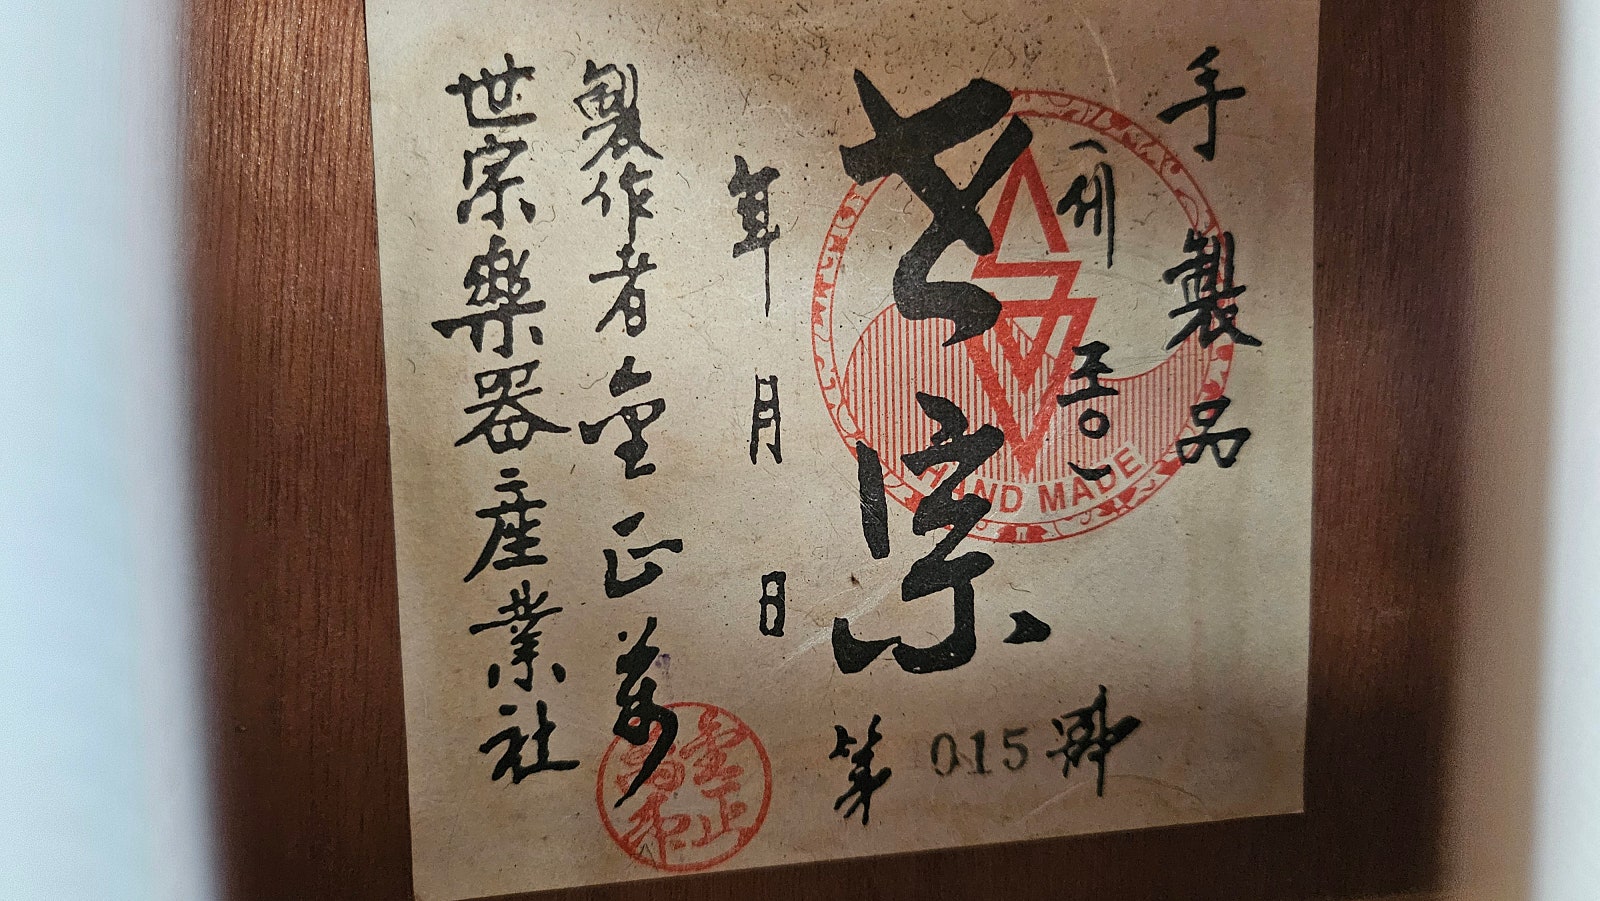 手製品
五〇一
世宗
HAND MADE
第 015 號
年 月 日
製作者 金正萬
世宗樂器産業社
金正萬印